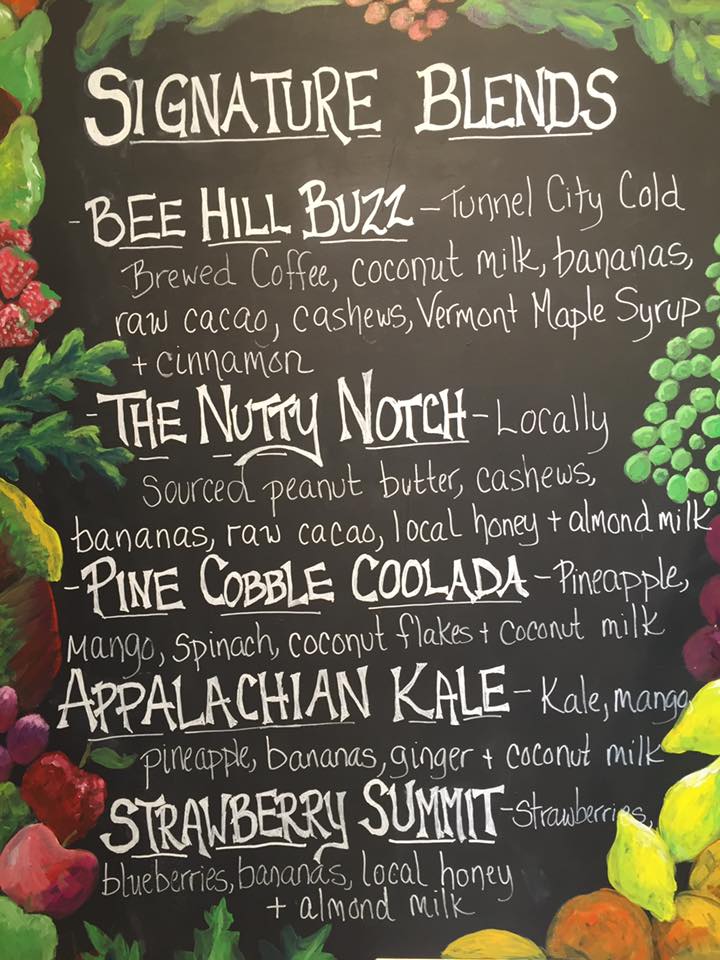 SIGNATURE BLENDS
- BEE HILL BUZZ - Tunnel City Cold
Brewed Coffee, coconut milk, bananas,
raw cacao, cashews, Vermont Maple Syrup
+ cinnamon
- THE NUTTY NOTCH - Locally
Sourced peanut butter, cashews,
bananas, raw cacao, local honey + almond milk
- PINE COBBLE COOLADA - Pineapple,
Mango, Spinach, coconut flakes + coconut milk
APPALACHIAN KALE - Kale, mango,
pineapple, bananas, ginger + coconut milk
STRAWBERRY SUMMIT - Strawberries,
blueberries, bananas, local honey
+ almond milk